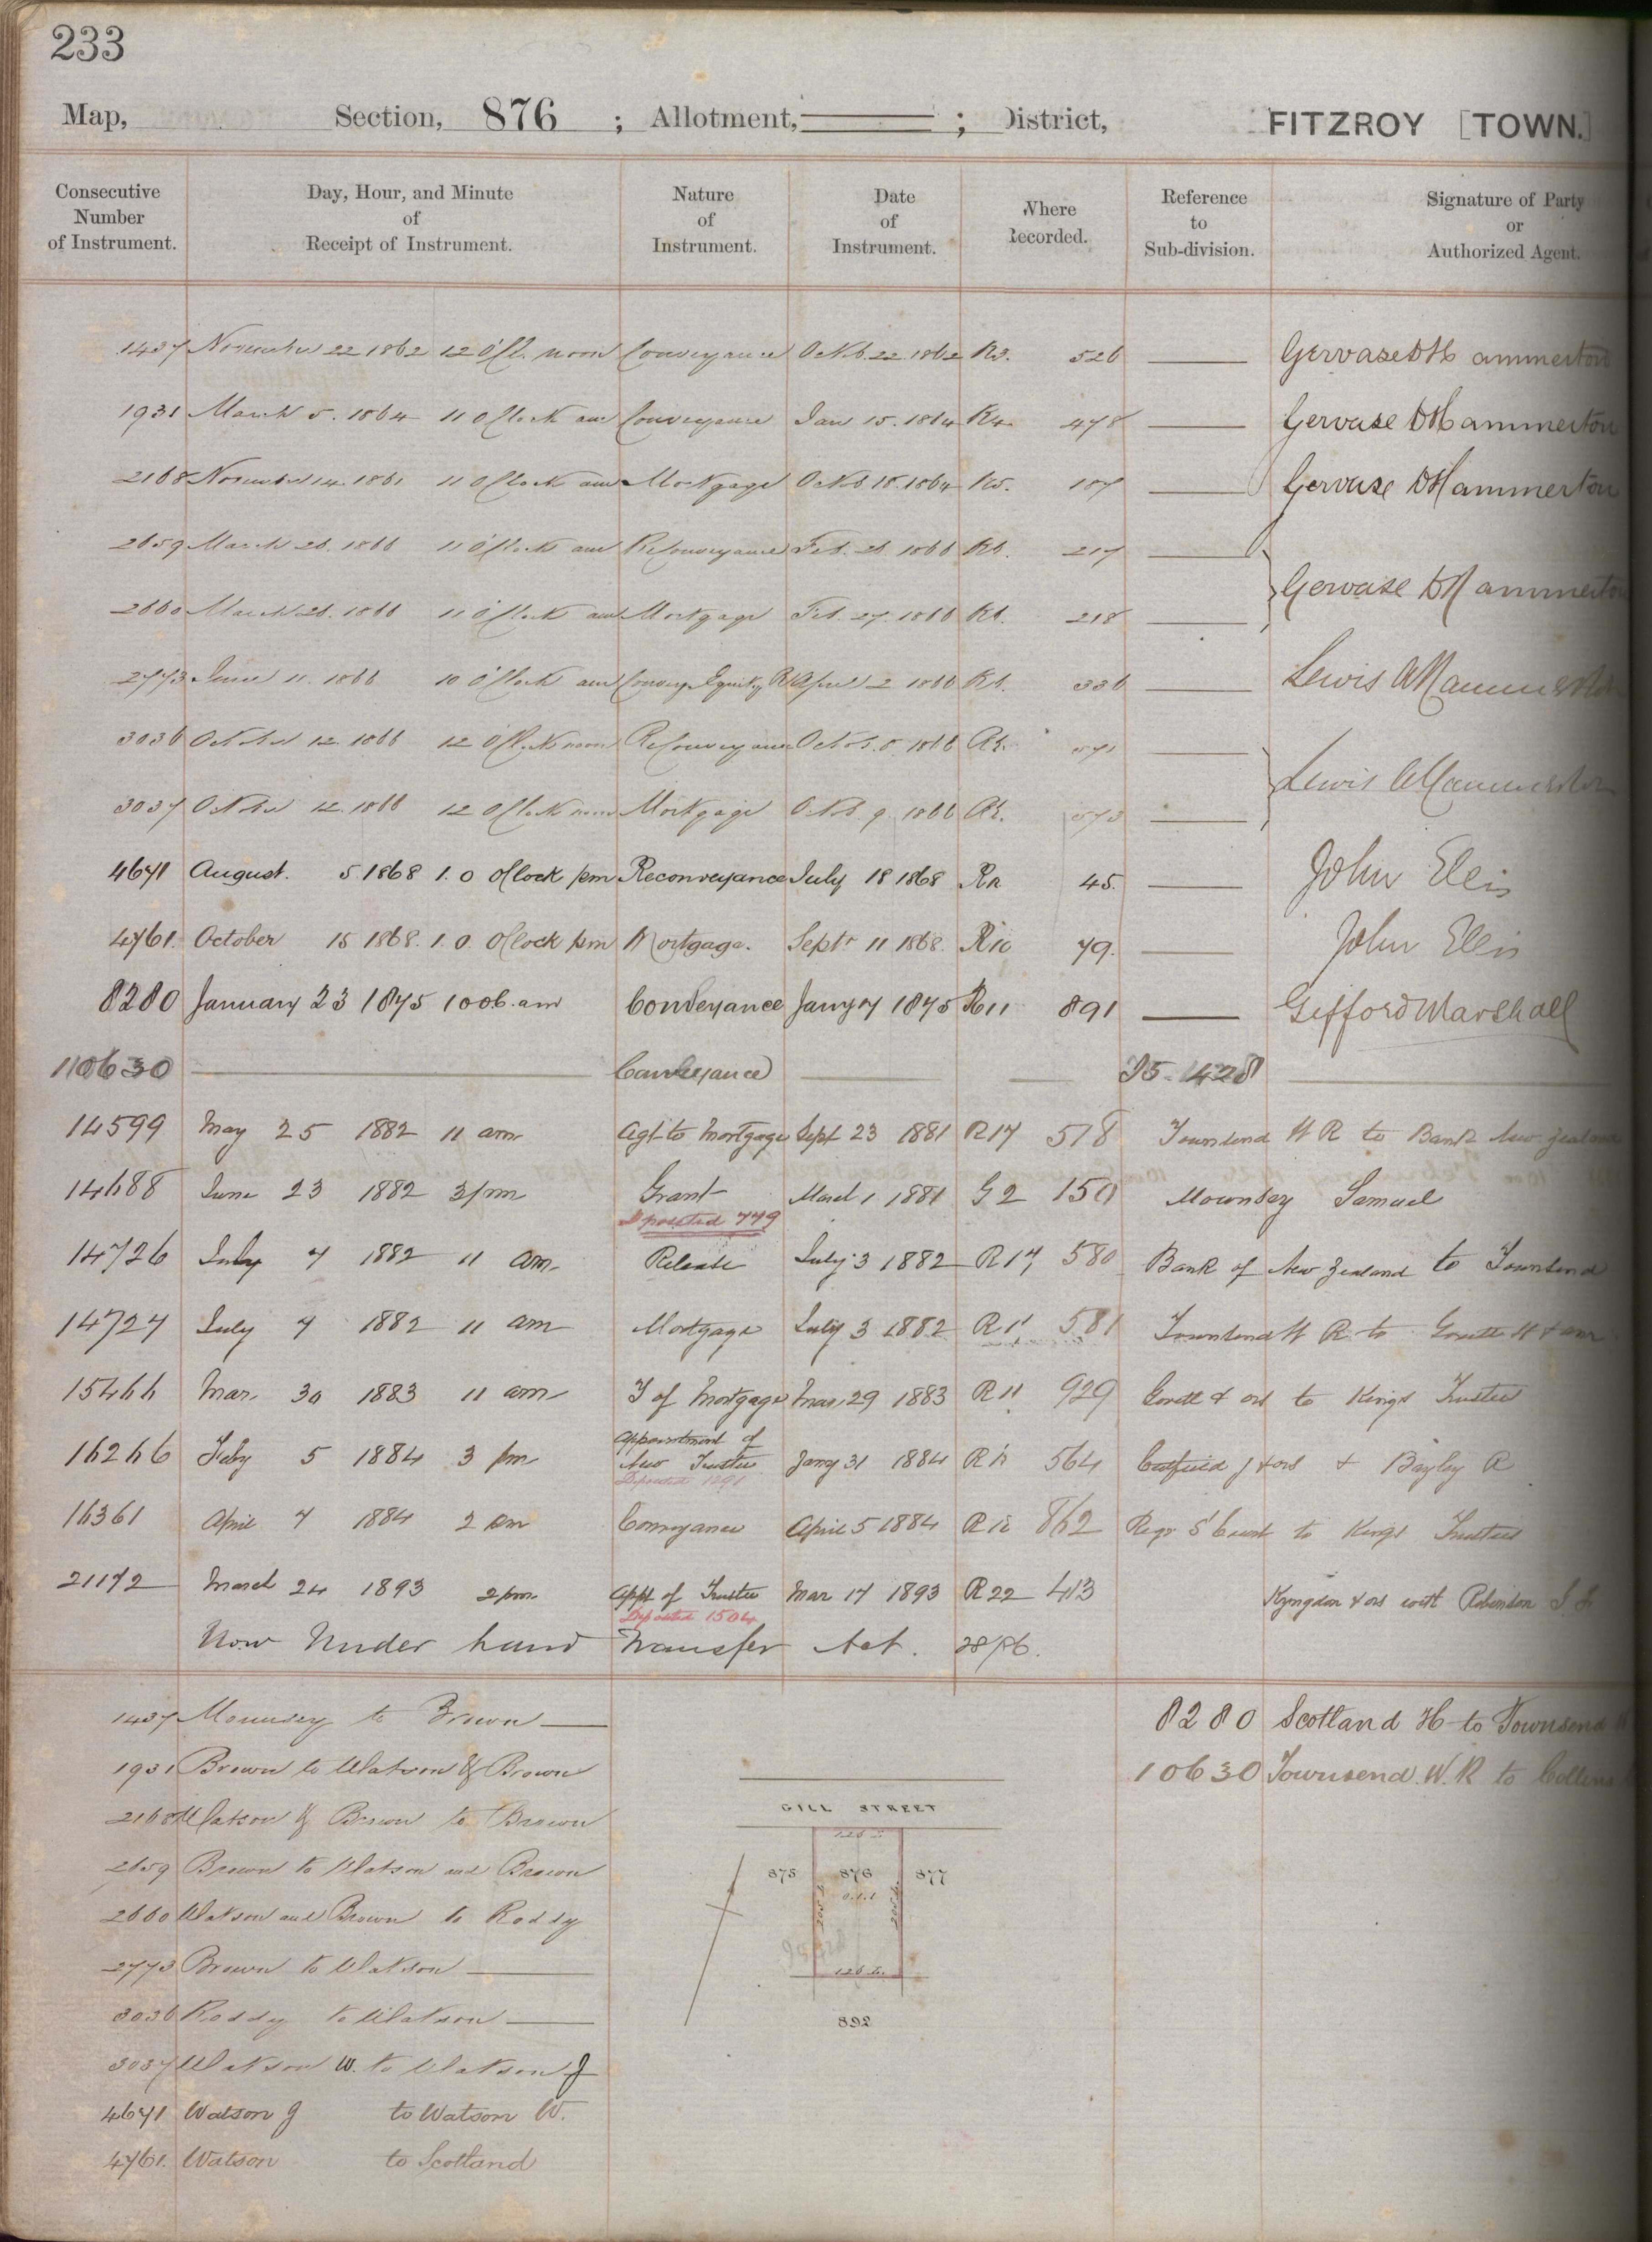 233
Map, Section, 876 ; Allotment, ; District, FITZROY [TOWN.]
Consecutive Number of Instrument. Day, Hour, and Minute of Receipt of Instrument. Nature of Instrument. Date of Instrument. Where Recorded. Reference to Sub-division. Signature of Party or Authorized Agent.
1437 November 22 1862 12 O'Cl. noon Conveyance Octob. 22. 1862 R3. 526 Gervase D Hammerton
1931 March 5. 1864 11 O'Clock am Conveyance Jan 15. 1864 R4 478 Gervase D Hammerton
2168 November 14. 1861 11 O'Clock am Mortgage Octob 18. 1864 R5. 187 Gervase D Hammerton
2659 March 26. 1866 11 O'Clock am ReConveyance Feb. 26. 1866 R6. 217
Gervase D Hammerton
2660 March 26. 1866 11 O'Clock am Mortgage Feb. 27. 1866 R6. 218
2773 June 11. 1866 10 O'Clock am Convey. Equity R April 2 1866 R6. 336 Lewis Hammerton
3036 October 12. 1866 12 O'Clock noon ReConveyance Octob. 8. 1866 R6. 571
Lewis Hammerton
3037 October 12. 1866 12 O'Clock noon Mortgage Octob. 9. 1866 R6. 573
4641 August. 5 1868 1. 0 O'Clock pm Reconveyance July 18 1868 45. John Ellis
4761. October 15 1868. 1. 0. O'Clock pm Mortgage. Septr 11 1868. R10 79. John Ellis
8280 January 23 1875 10 06. am Conveyance Jany 7 1875 R11 891 Gifford Marshall
110630 Conveyance 428
14599 May 25 1882 11 am Agt to Mortgage Sept 23 1881 R17 518 Townsend W R to Bank New Zealand
14688 June 23 1882 3 pm Grant March 1 1881 G 2 150 Mounsey Samuel
Deposited 779
14726 July 7 1882 11 am. Release July 3 1882 R17 580 Bank of New Zealand to Townsend
14727 July 7 1882 11 am Mortgage July 3 1882 581 Townsend W R to Govett
15466 Mar. 30 1883 11 am T of Mortgage Mar. 29 1883 929 Govett & ors to Kings Trustee
Appointment of
16266 Feby 5 1884 3 pm New Trustee Jany 31 1884 564 & ors & Bayley R
Deposited 1291
16361 April 7 1884 2 pm Conveyance April 5 1884 862 Regr S Court to Kings Trustees
21172 March 24 1893 2 pm. Appt of Trustee Mar 17 1893 R22 413 Kyngdon & ors with Robinson
Deposited 1504
Now Under Land Transfer Act. 28/86.
1437 Mounsey to Brown 8280 Scotland H to Townsend
1931 Brown to Watson & Brown 10630 Townsend. W. R to Collins
2168 Watson & Brown to Brown
2659 Brown to Watson and Brown
2660 Watson and Brown to Roddy
2773 Brown to Watson
3036 Roddy to Watson
3037 Watson W. to Watson J
4641 Watson J to Watson W.
4761. Watson to Scotland
GILL STREET
126 L.
875 876 877
0.1.1
205 L.
205 L.
126 L.
892